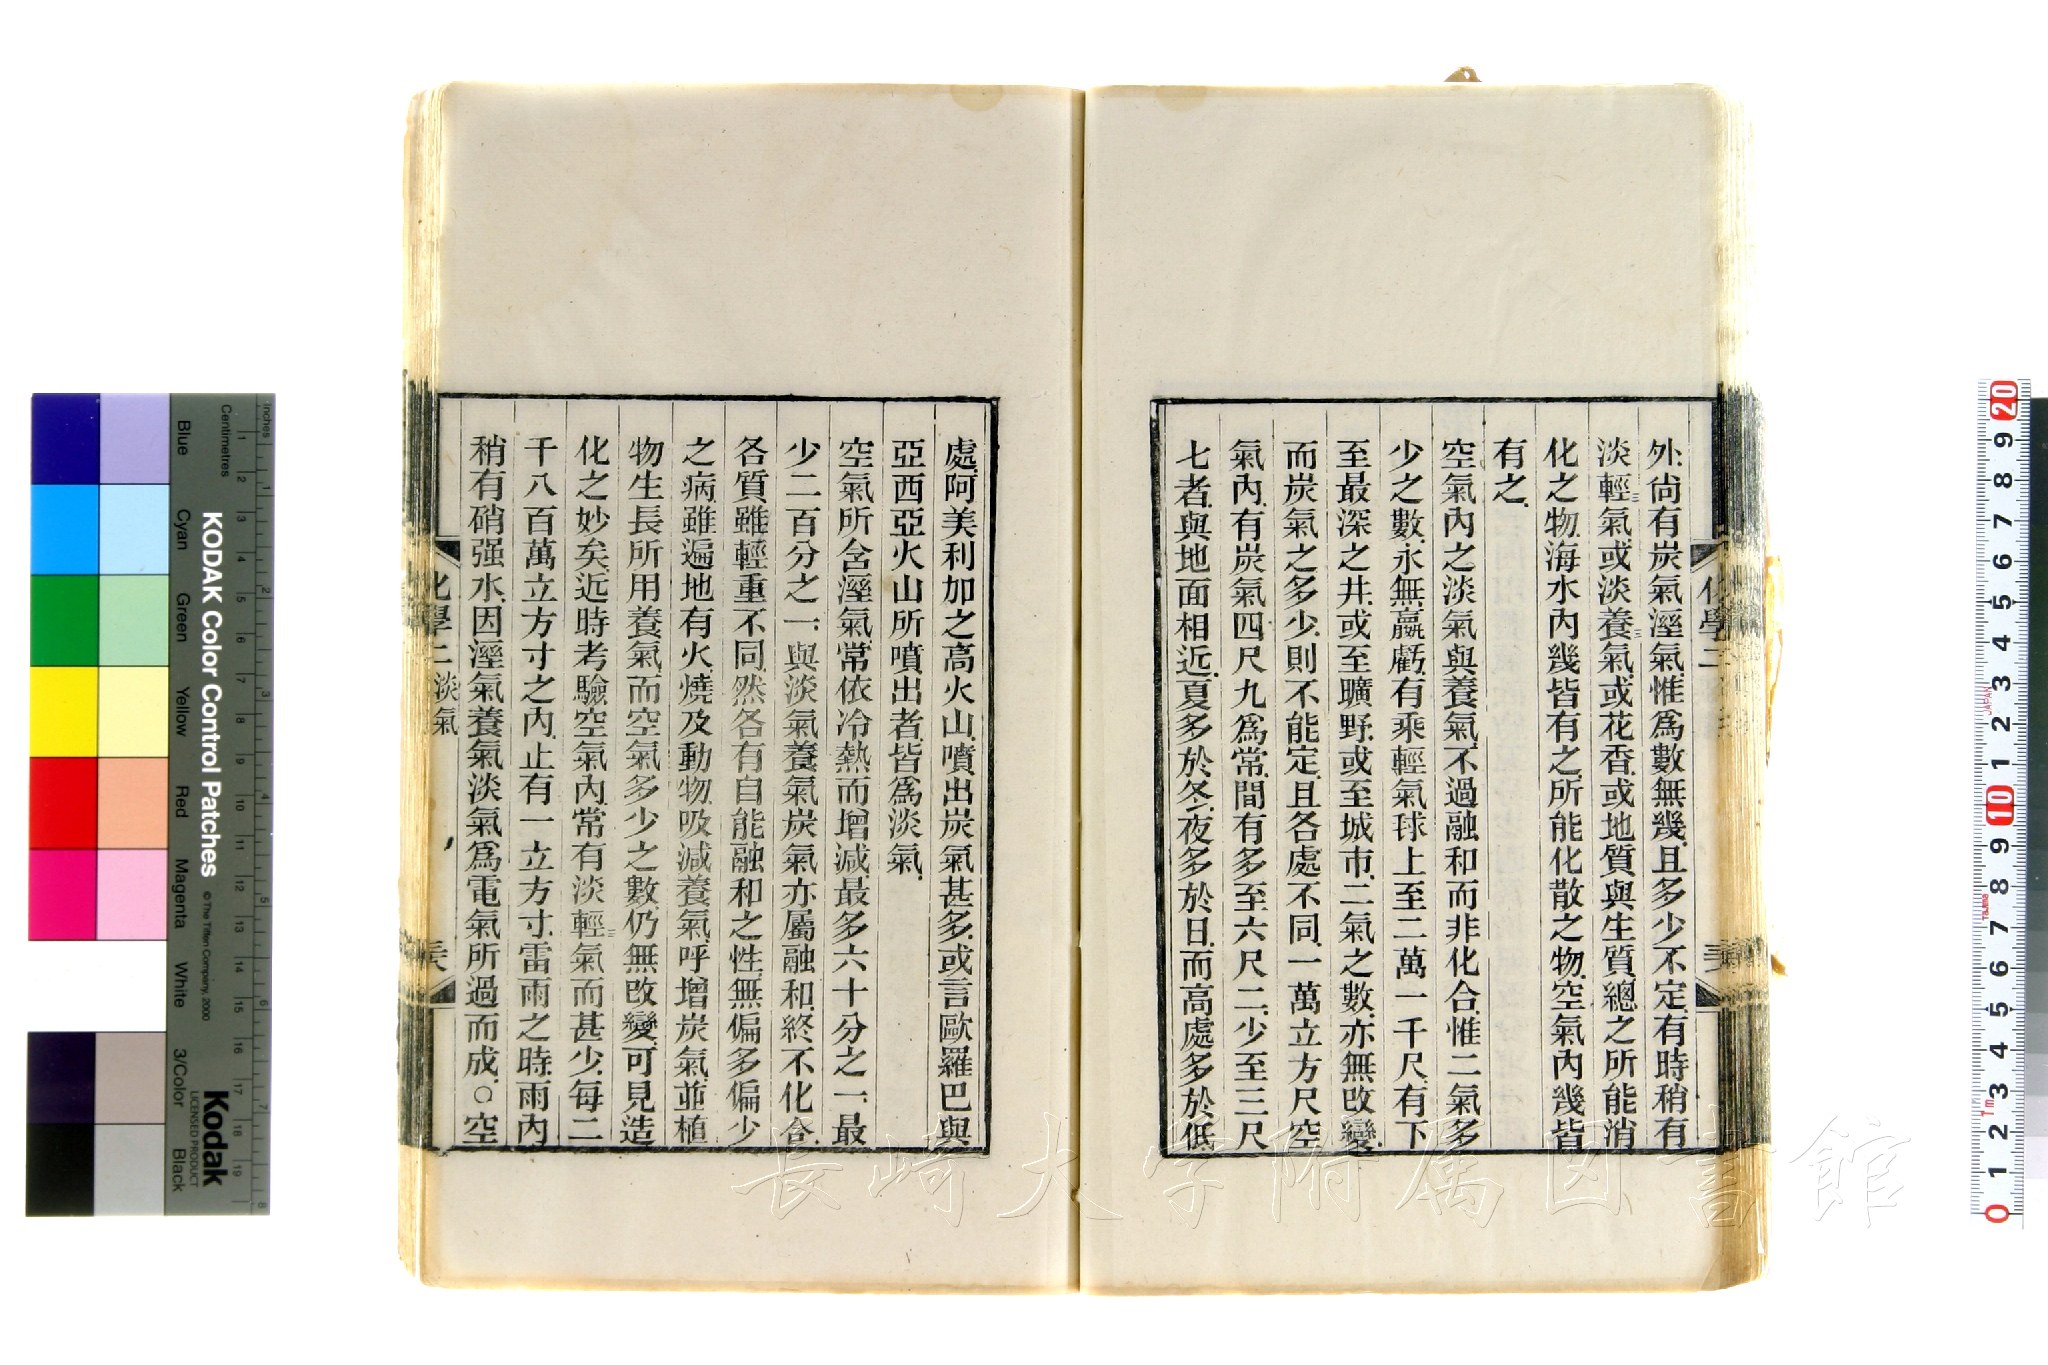 外尙有炭氣溼氣惟爲數無幾且多少不定有時稍有
淡輕氣或淡養氣或花香或地質與生質總之所能消
化之物海水內幾皆有之所能化散之物空氣內幾皆
有之
空氣內之淡氣與養氣不過融和而非化合惟二氣多
少之數永無贏虧有乘輕氣球上至二萬一千尺有下
至最深之井或至曠野或至城市二氣之數亦無改變
而炭氣之多少則不能定且各處不同一萬立方尺空
氣內有炭氣四尺九爲常間有多至六尺二少至三尺
七者與地面相近夏多於冬夜多於日而高處多於低
處阿美利加之高火山噴出炭氣甚多或言歐羅巴與
亞西亞火山所噴出者皆爲淡氣
空氣所含溼氣常依冷熱而增減最多六十分之一最
少二百分之一與淡氣養氣炭氣亦屬融和終不化合
各質雖輕重不同然各有自能融和之性無偏多偏少
之病雖遍地有火燒及動物吸減養氣呼增炭氣並植
物生長所用養氣而空氣多少之數仍無改變可見造
化之妙矣近時考驗空氣內常有淡輕氣而甚少每二
千八百萬立方寸之內止有一立方寸雷雨之時雨內
稍有硝强水因溼氣養氣淡氣爲電氣所過而成○空
化學二 淡氣
化學二
KODAK Color Control Patches
© The Tiffen Company, 2000
Kodak
LICENSED PRODUCT
Inches
Centimetres
Blue
Cyan
Green
Yellow
Red
Magenta
White
3/Color
Black
長崎大学附属図書館